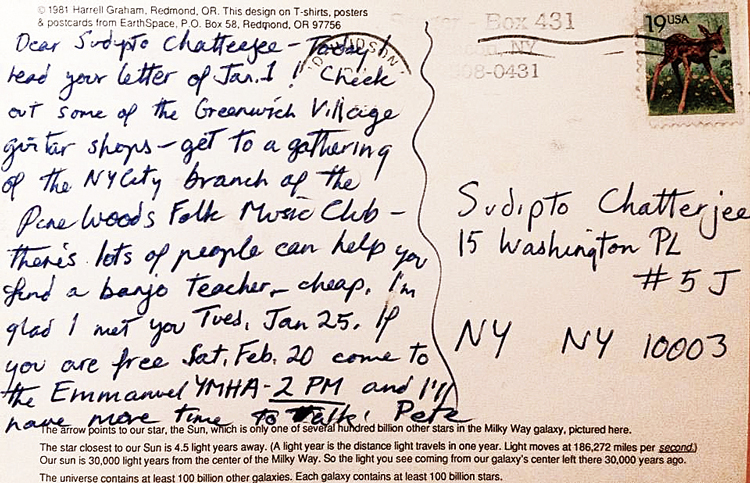 © 1981 Harrell Graham, Redmond, OR. This design on T-shirts, posters
& postcards from EarthSpace, P.O. Box 58, Redmond, OR 97756
Box 431
NY
508-0431
19 USA
Dear Sudipto Chatterjee – Today I
read your letter of Jan. 1! Check
out some of the Greenwich Village
guitar shops – get to a gathering
of the NYCity branch of the
Pine Woods Folk Music Club –
there's lots of people can help you
find a banjo teacher – cheap. I'm
glad I met you Tues, Jan 25. If
you are free Sat, Feb. 20 come to
the Emmanuel YMHA - 2 PM and I'll
have more time to talk! Pete
Sudipto Chatterjee
15 Washington PL
# 5 J
NY NY 10003
The arrow points to our star, the Sun, which is only one of several hundred billion other stars in the Milky Way galaxy, pictured here.
The star closest to our Sun is 4.5 light years away. (A light year is the distance light travels in one year. Light moves at 186,272 miles per second.)
Our sun is 30,000 light years from the center of the Milky Way. So the light you see coming from our galaxy's center left there 30,000 years ago.
The universe contains at least 100 billion other galaxies. Each galaxy contains at least 100 billion stars.